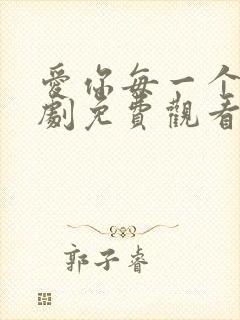 愛你每一个
劇免費觀看
郭子睿